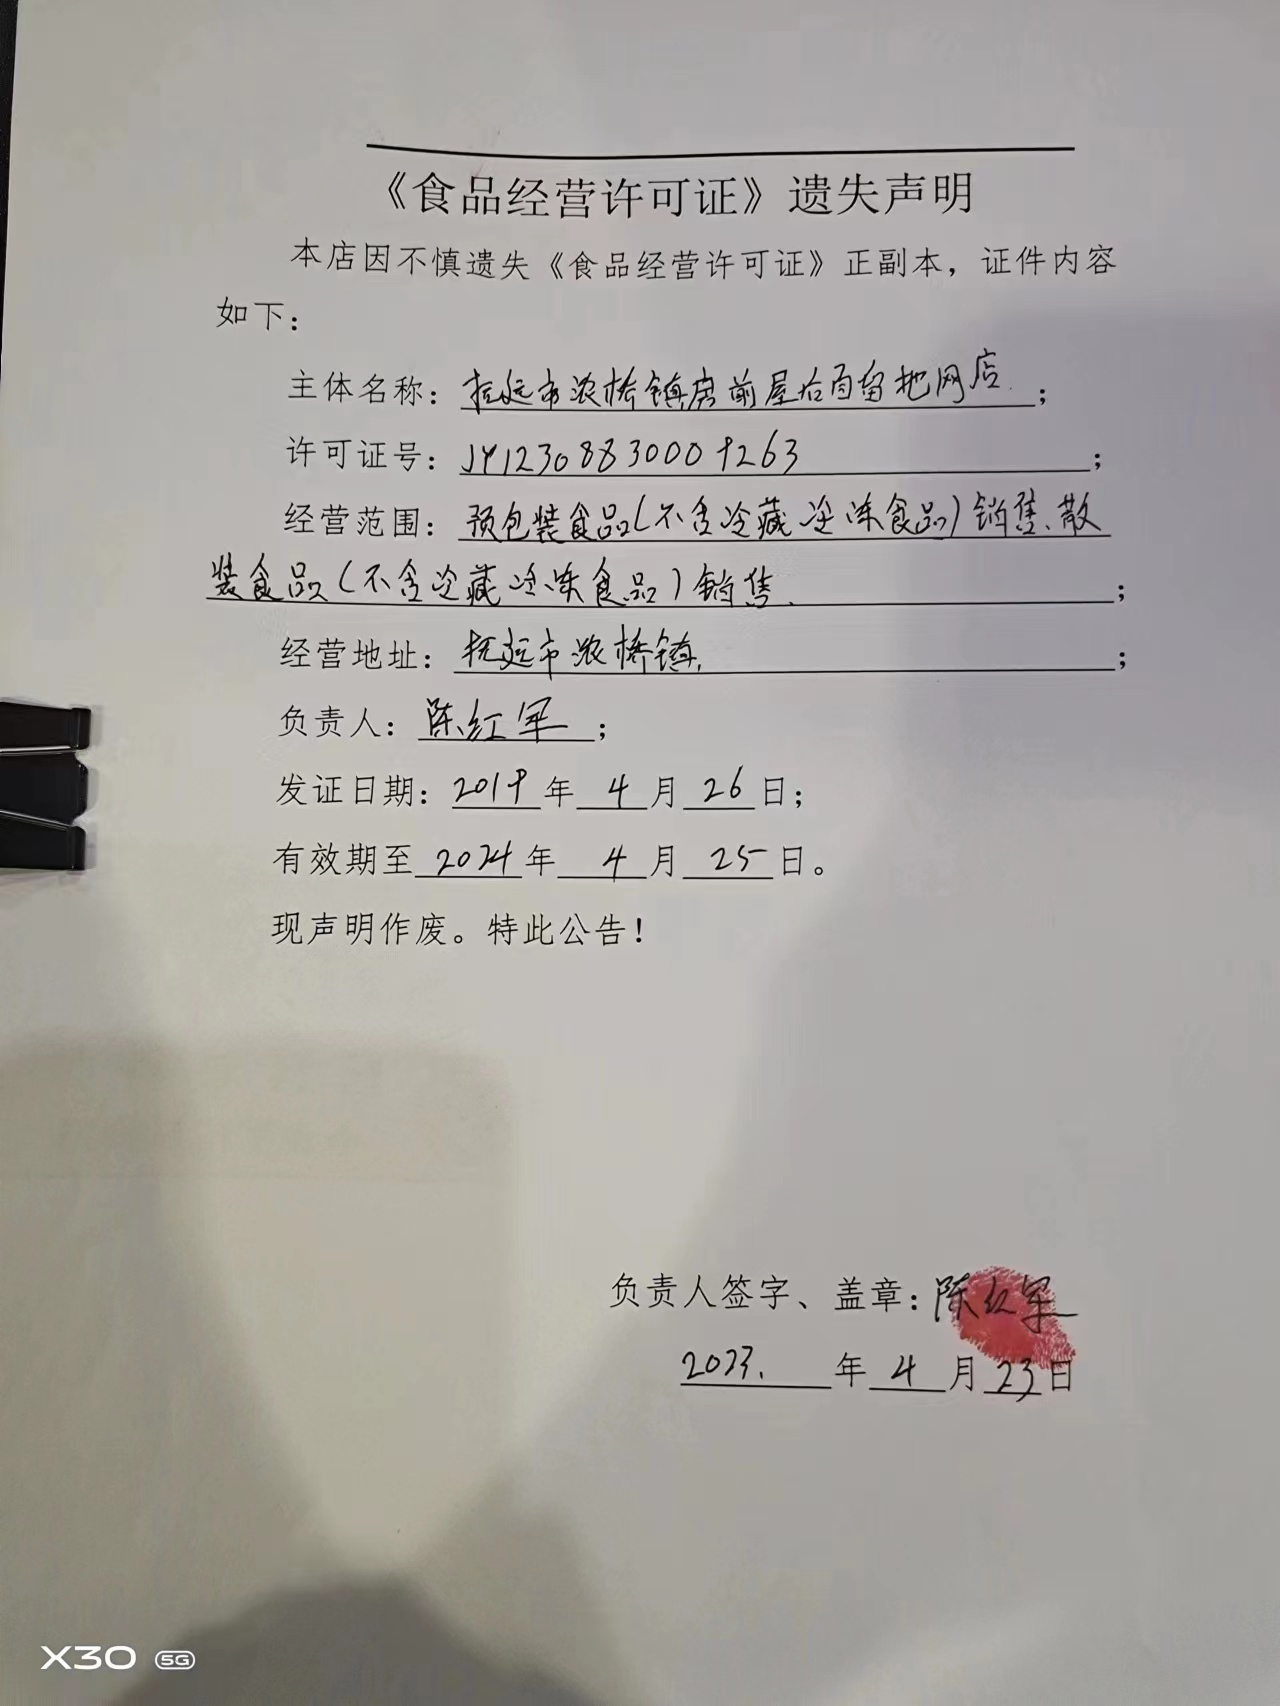 《食品经营许可证》遗失声明
本店因不慎遗失《食品经营许可证》正副本，证件内容
如下：
主体名称：抚远市浓桥镇房前屋后自留地网店；
许可证号：JY12308830009263；
经营范围：预包装食品(不含冷藏冷冻食品)销售、散
装食品(不含冷藏冷冻食品)销售、；
经营地址：抚远市浓桥镇.；
负责人：陈红军；
发证日期：2019年4月26日；
有效期至2024年4月25日。
现声明作废。特此公告！
负责人签字、盖章：陈红军
2023.年4月23日
X30 5G